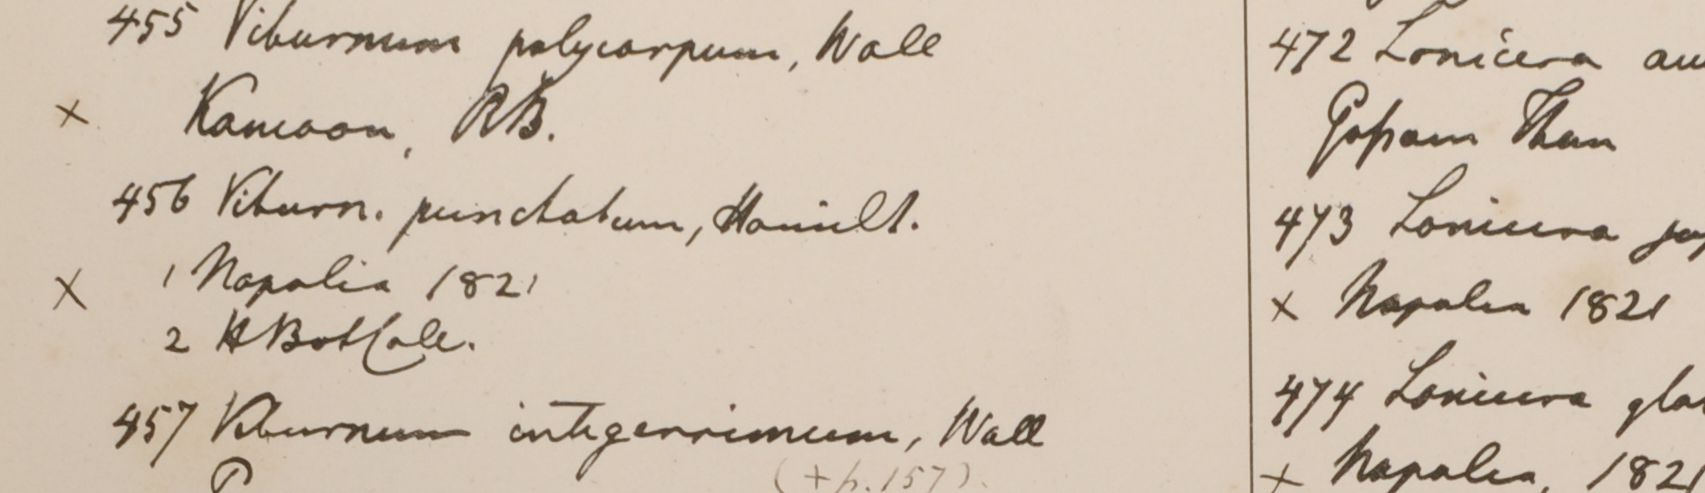 455 Viburnum polycarpum, Wall
× Kamaon, RB.
456 Viburn. punctatum, Hamilt.
1 Napalia 1821
×
2 HBotCalc.
457 Viburnum integerrimum, Wall
(+p.157).
472 Lonicera
Gossam Than
473 Lonicera
× Napalia 1821
474 Lonicera gla
× Napalia, 1821